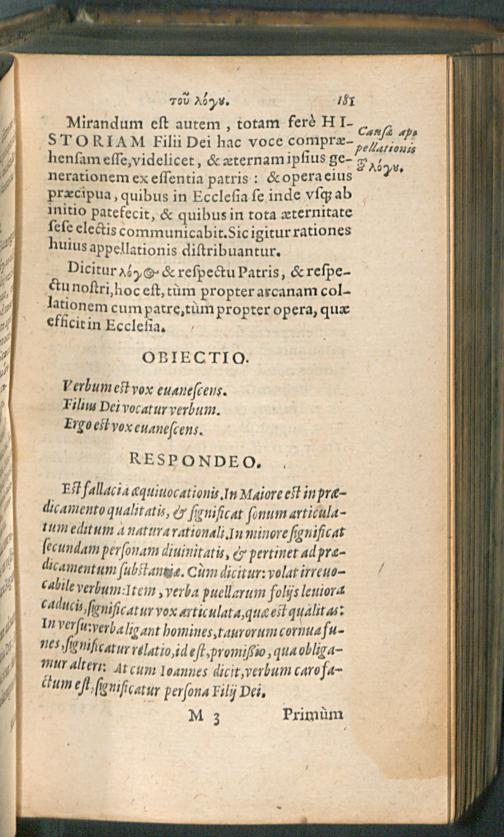 τοῦ λόγου. 181
Mirandum est autem, totam ferè HI-
STORIAM Filii Dei hac voce compræ-
hensam esse, videlicet, & æternam ipsius ge-
nerationem ex essentia patris: & opera eius
præcipua, quibus in Ecclesia se inde vsq; ab
initio patefecit, & quibus in tota æternitate
sese electis communicabit. Sic igitur rationes
huius appellationis distribuantur.
Causæ ap-
pellationis
τοῦ λόγου.
Dicitur λόγος & respectu Patris, & respe-
ctu nostri, hoc est, tùm propter arcanam col-
lationem cum patre, tùm propter opera, quæ
efficit in Ecclesia.
OBIECTIO.
Verbum est vox euanescens.
Filius Dei vocatur verbum.
Ergo est vox euanescens.
RESPONDEO.
Est fallacia æquiuocationis. In Maiore est in præ-
dicamento qualitatis, & significat sonum articula-
tum editum à natura rationali. In minore significat
secundam personam diuinitatis, & pertinet ad præ-
dicamentum substantiæ. Cùm dicitur: volat irreuo-
cabile verbum: Item, verba puellarum folijs leuiora
caducis, significatur vox articulata, quæ est qualitas:
In versu: verba ligant homines, taurorum cornua fu-
nes, significatur relatio, id est, promissio, qua obliga-
mur alteri: At cum Ioannes dicit, verbum caro fa-
ctum est, significatur persona Filij Dei.
M 3 Primùm